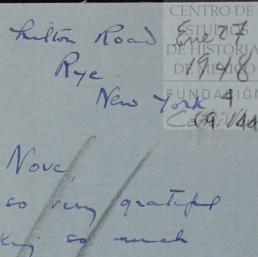 CENTRO DE
ESTUDIOS
DE HISTORIA
DE MÉXICO
FUNDACIÓN
Milton Road
Rye.
New York
Ene 27
1948
Nove,
so very grateful
so much